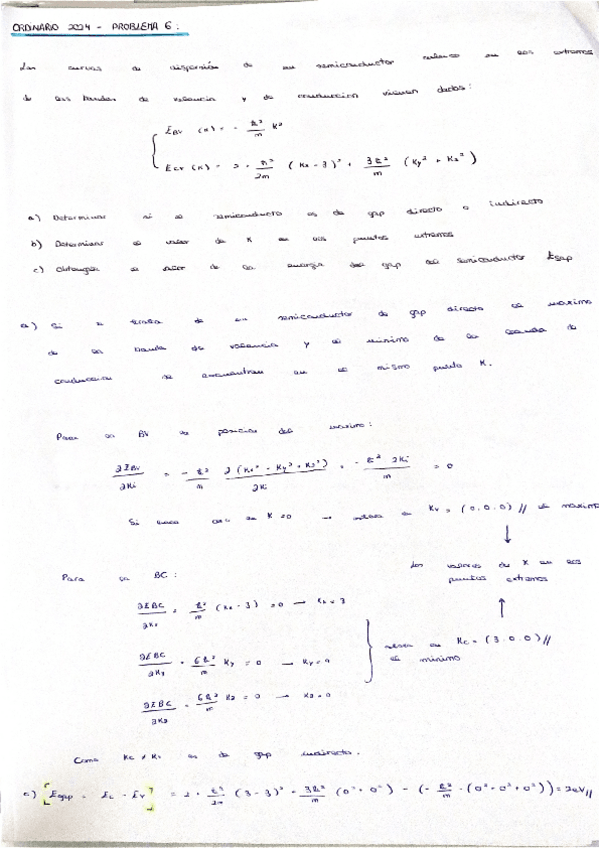 ORDINARIO 2024 - PROBLEMA 6:
Las curvas de dispersión de un semiconductor en sus extremos
de sus bandas de valencia y de conducción vienen dadas:
E_BV (K) = - ħ²/m K²
E_CV (K) = 2 + ħ²/2m (Kx - 3)² + 3ħ²/m (Ky² + Kz²)
a) Determinar si el semiconductor es de gap directo o indirecto
b) Determinar el valor de K en sus puntos extremos
c) Obtenga el valor de la energía del gap del semiconductor Egap
a) Si se trata de un semiconductor de gap directo el máximo
de la banda de valencia y el mínimo de la banda de
conducción se encuentran en el mismo punto K.
Para la BV la posición del máximo:
∂E_BV/∂Ki = - ħ²/m ∂(Kx² + Ky² + Kz²)/∂Ki = - ħ² 2Ki/m = 0
Si K=0 → Kv = (0,0,0) // el máximo
↓
Los valores de K en sus
puntos extremos
↑
Para la BC:
∂E_BC/∂Kx = ħ²/m (Kx - 3) = 0 → Kx = 3
∂E_BC/∂Ky = 6ħ²/m Ky = 0 → Ky = 0
∂E_BC/∂Kz = 6ħ²/m Kz = 0 → Kz = 0
Kc = (3,0,0) //
el mínimo
Como Kc ≠ Kv es de gap indirecto.
c) [Egap = Ec - Ev] = 2 + ħ²/2m (3-3)² + 3ħ²/m (0² + 0²) - (- ħ²/m · (0² + 0² + 0²)) = 2eV //